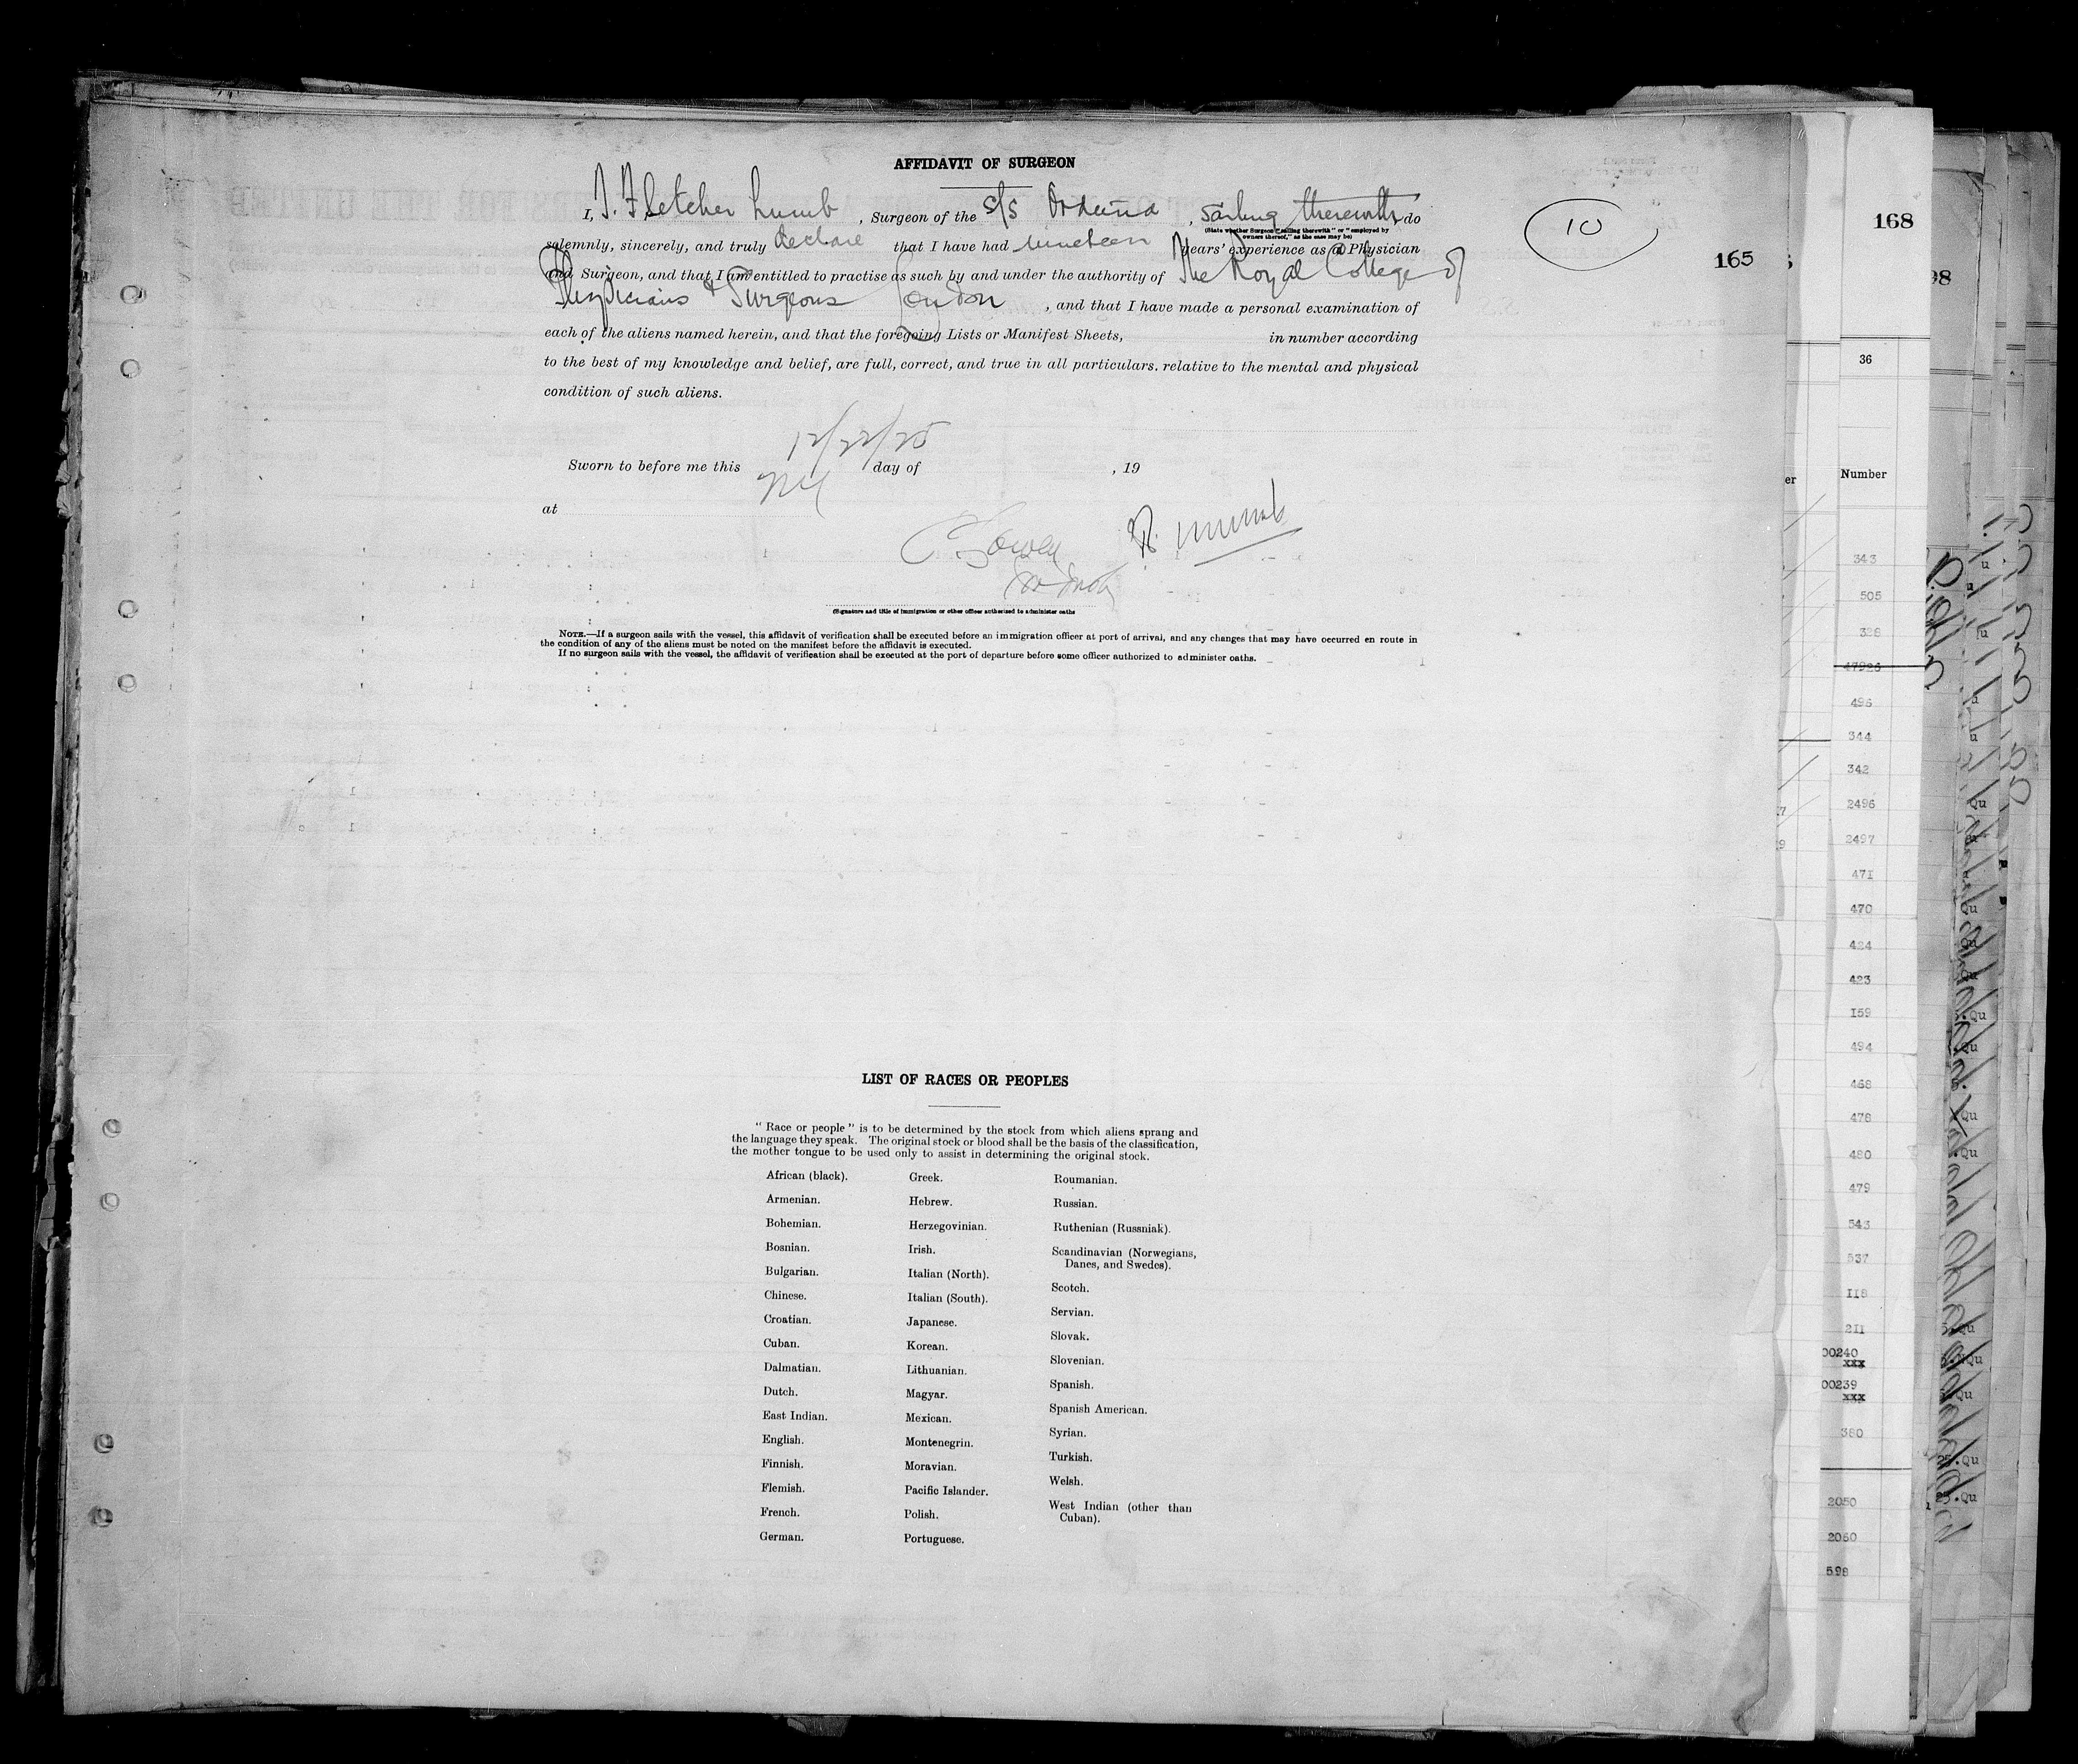 AFFIDAVIT OF SURGEON
I, J. Fletcher Lumb, Surgeon of the s/s Orduna, sailing therewith do
(State whether Surgeon "sailing therewith" or "employed by
owners thereof," as the case may be)
solemnly, sincerely, and truly declare that I have had nineteen years' experience as a Physician
and Surgeon, and that I am entitled to practise as such by and under the authority of The Royal College of
Physicians & Surgeons London, and that I have made a personal examination of
each of the aliens named herein, and that the foregoing Lists or Manifest Sheets, in number according
to the best of my knowledge and belief, are full, correct, and true in all particulars. relative to the mental and physical
condition of such aliens.
12/22/25
Sworn to before me this day of , 19
NY
at
(Signature and title of immigration or other officer authorized to administer oaths
NOTE.—If a surgeon sails with the vessel, this affidavit of verification shall be executed before an immigration officer at port of arrival, and any changes that may have occurred en route in
the condition of any of the aliens must be noted on the manifest before the affidavit is executed.
If no surgeon sails with the vessel, the affidavit of verification shall be executed at the port of departure before some officer authorized to administer oaths.
10
165
LIST OF RACES OR PEOPLES
" Race or people " is to be determined by the stock from which aliens sprang and
the language they speak. The original stock or blood shall be the basis of the classification,
the mother tongue to be used only to assist in determining the original stock.
African (black).
Armenian.
Bohemian.
Bosnian.
Bulgarian.
Chinese.
Croatian.
Cuban.
Dalmatian.
Dutch.
East Indian.
English.
Finnish.
Flemish.
French.
German.
Greek.
Hebrew.
Herzegovinian.
Irish.
Italian (North).
Italian (South).
Japanese.
Korean.
Lithuanian.
Magyar.
Mexican.
Montenegrin.
Moravian.
Pacific Islander.
Polish.
Portuguese.
Roumanian.
Russian.
Ruthenian (Russniak).
Scandinavian (Norwegians,
Danes, and Swedes).
Scotch.
Servian.
Slovak.
Slovenian.
Spanish.
Spanish American.
Syrian.
Turkish.
Welsh.
West Indian (other than
Cuban).
168
36
Number
343
505
47926
496
344
342
2496
2497
471
470
424
423
159
494
468
478
480
479
543
537
118
211
00240
xxx
00239
xxx
380
2050
2060
598
98